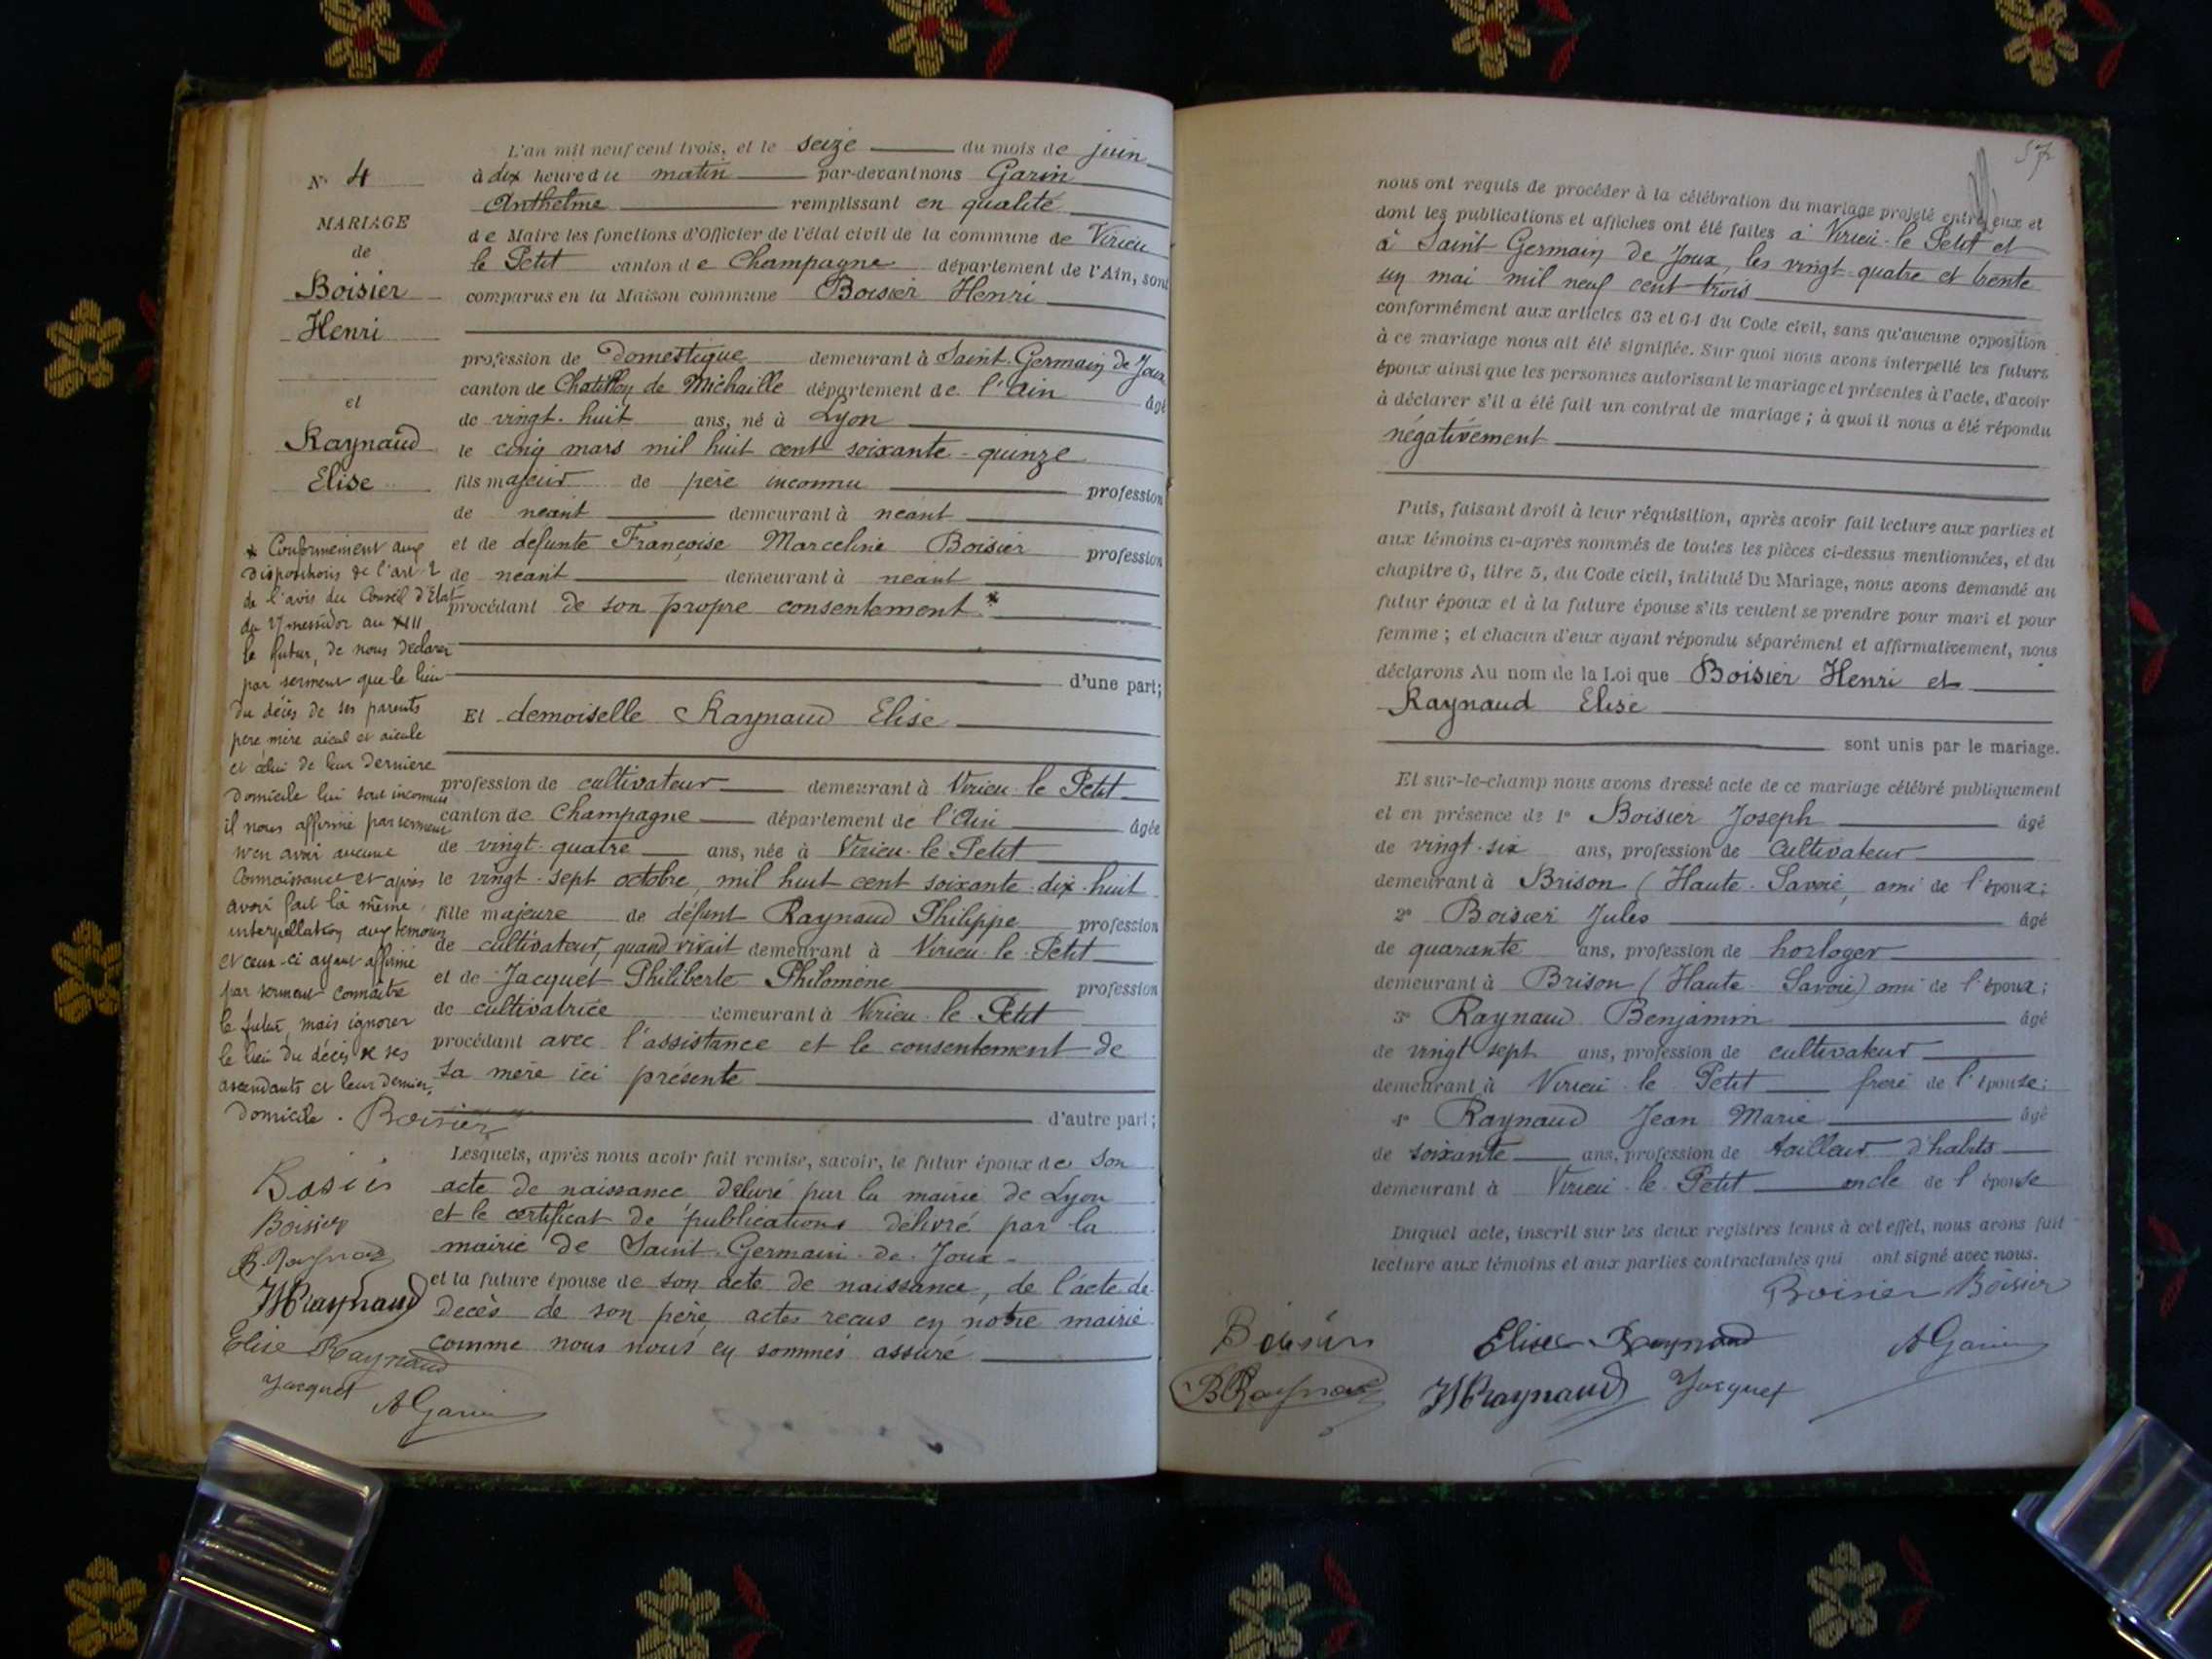 N° 4
MARIAGE
de
Boisier
Henri
et
Raynaud
Elise
* Conformément aux
dispositions de l'art 2
de l'avis du Conseil d'Etat
du 4 messidor an XIII
le futur, de nous déclarer
par serment que le lieu
du décès de ses parents
père mère aieul et aieule
et celui de leur dernière
domicile lui sont inconnus
il nous affirme par serment
n'en avoir aucune
connaissance et après
avoir fait la même
interpellation aux témoins
et ceux-ci ayant affirmé
par serment connaître
le futur, mais ignorer
le lieu du décès de ses
ascendants et leur dernier
domicile. Boisier
Boisier
Boisier
B. Raynaud
JM Raynaud
Elise Raynaud
Jacquet
A Garin
L'an mil neuf cent trois, et le seize du mois de juin
à dix heure du matin par-devant nous Garin
Anthelme remplissant en qualité
de Maire les fonctions d'Officier de l'état civil de la commune de Virieu
le Petit canton de Champagne département de l'Ain, sont
comparus en la Maison commune Boisier Henri
profession de Domestique demeurant à Saint Germain de Joux
canton de Chatillon de Michaille département de l'Ain âgé
de vingt-huit ans, né à Lyon
le cinq mars mil huit cent soixante-quinze
fils majeur de père inconnu profession
de néant demeurant à néant
et de défunte Françoise Marceline Boisier profession
de néant demeurant à néant
procédant de son propre consentement *
d'une part;
Et demoiselle Raynaud Elise
profession de cultivateur demeurant à Virieu-le-Petit
canton de Champagne département de l'Ain âgée
de vingt-quatre ans, née à Virieu-le-Petit
le vingt-sept octobre mil huit cent soixante-dix-huit
fille majeure de défunt Raynaud Philippe profession
de cultivateur, quand vivait demeurant à Virieu-le-Petit
et de Jacquet Philiberte Philomène profession
de cultivatrice demeurant à Virieu-le-Petit
procédant avec l'assistance et le consentement de
sa mère ici présente
d'autre part;
Lesquels, après nous avoir fait remise, savoir, le futur époux de son
acte de naissance délivré par la mairie de Lyon
et le certificat de publications délivré par la
mairie de Saint-Germain-de-Joux
et la future épouse de son acte de naissance, de l'acte de
décès de son père, actes reçus en notre mairie
comme nous nous en sommes assuré
57
nous ont requis de procéder à la célébration du mariage projeté entre eux et
dont les publications et affiches ont été faites à Virieu-le-Petit et
à Saint Germain de Joux, les vingt-quatre et trente
un mai mil neuf cent trois
conformément aux articles 63 et 64 du Code civil, sans qu'aucune opposition
à ce mariage nous ait été signifiée. Sur quoi nous avons interpellé les futurs
époux ainsi que les personnes autorisant le mariage et présentes à l'acte, d'avoir
à déclarer s'il a été fait un contrat de mariage; à quoi il nous a été répondu
négativement
Puis, faisant droit à leur réquisition, après avoir fait lecture aux parties et
aux témoins ci-après nommés de toutes les pièces ci-dessus mentionnées, et du
chapitre 6, titre 5, du Code civil, intitulé Du Mariage, nous avons demandé au
futur époux et à la future épouse s'ils veulent se prendre pour mari et pour
femme; et chacun d'eux ayant répondu séparément et affirmativement, nous
déclarons Au nom de la Loi que Boisier Henri et
Raynaud Elise
sont unis par le mariage.
Et sur-le-champ nous avons dressé acte de ce mariage célébré publiquement
et en présence de 1° Boisier Joseph âgé
de vingt-six ans, profession de cultivateur
demeurant à Brison (Haute-Savoie, ami de l'époux;
2° Boisier Jules âgé
de quarante ans, profession de horloger
demeurant à Brison (Haute Savoie) ami de l'époux;
3° Raynaud Benjamin âgé
de vingt sept ans, profession de cultivateur
demeurant à Virieu-le-Petit frère de l'épouse;
4° Raynaud Jean Marie âgé
de soixante ans, profession de tailleur d'habits
demeurant à Virieu-le-Petit oncle de l'épouse
Duquel acte, inscrit sur les deux registres tenus à cet effet, nous avons fait
lecture aux témoins et aux parties contractantes qui ont signé avec nous.
Boisier Boisier
Boisier Elise Raynaud A Garin
B Raynaud JM Raynaud Jacquet